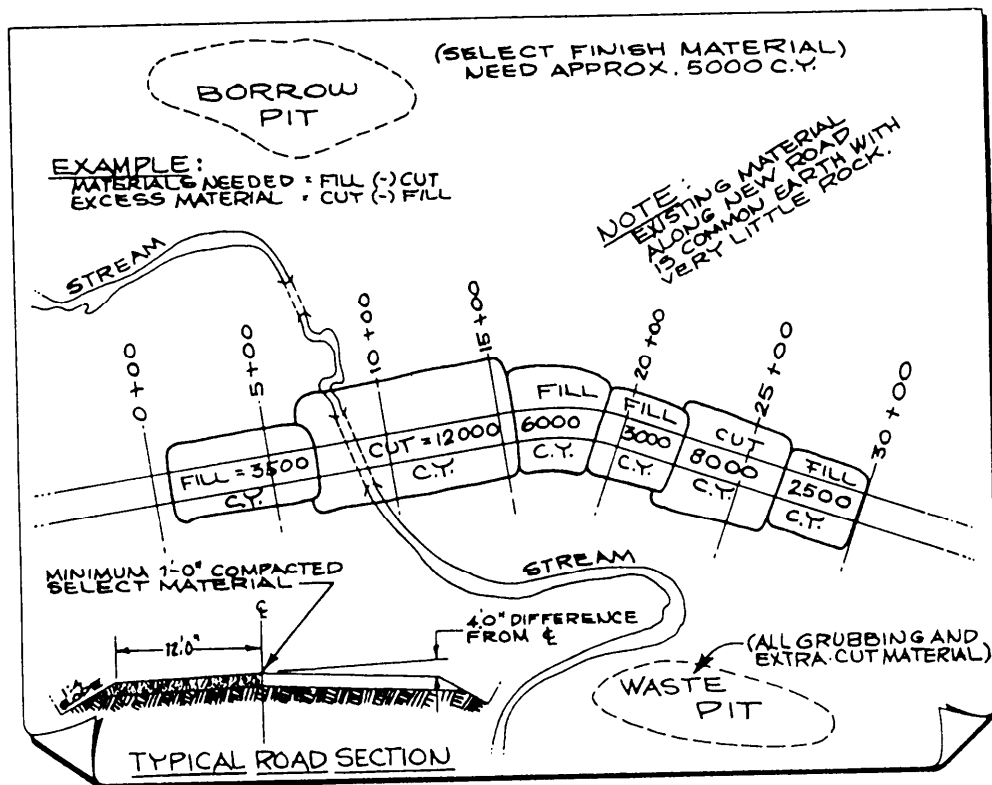 (SELECT FINISH MATERIAL)
NEED APPROX. 5000 C.Y.
BORROW
PIT
EXAMPLE:
MATERIALS NEEDED = FILL (-) CUT
EXCESS MATERIAL = CUT (-) FILL
NOTE:
EXISTING MATERIAL
ALONG NEW ROAD
IS COMMON EARTH WITH
VERY LITTLE ROCK.
STREAM
0+00
5+00
10+00
15+00
20+00
25+00
30+00
FILL = 3500
C.Y.
CUT = 12000
C.Y.
FILL
6000
C.Y.
FILL
3000
C.Y.
CUT
8000
C.Y.
FILL
2500
C.Y.
STREAM
MINIMUM 1'-0" COMPACTED
SELECT MATERIAL
℄
12'.0"
4'.0" DIFFERENCE
FROM ℄
(ALL GRUBBING AND
EXTRA CUT MATERIAL)
WASTE
PIT
TYPICAL ROAD SECTION